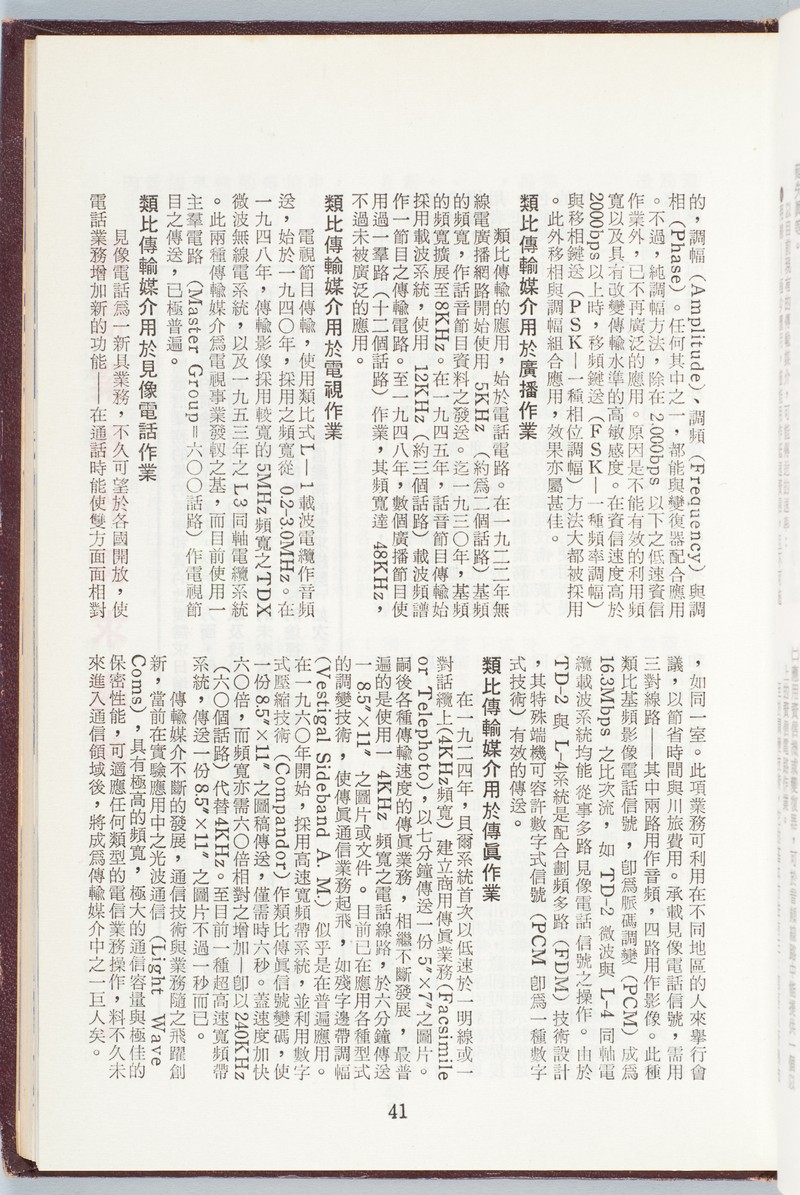 的，調幅（Amplitude）、調頻（Frequency）與調
相（Phase）。任何其中之一，都能與變復器配合應用
。不過，純調幅方法，除在 2.000bps 以下之低速資信
作業外，已不再廣泛的應用。原因是不能有效的利用頻
寬以及具有改變傳輸水準的高敏感度。在資信速度高於
2000bps以上時，移頻鍵送（FSK—一種頻率調幅）
與移相鍵送（PSK—一種相位調幅）方法大都被採用
。此外移相與調幅組合應用，效果亦屬甚佳。
類比傳輸媒介用於廣播作業
類比傳輸的應用，始於電話電路。在一九二二年無
線電廣播網路開始使用 5KHz （約爲二個話路）基頻
的頻寬，作話音節目資料之發送。迄一九三〇年，基頻
的頻寬擴展至8KHz。在一九四五年，話音節目傳輸始
採用載波系統，使用 12KHz（約三個話路）載波頻譜
作一節目之傳輸電路。至一九四八年，數個廣播節目使
用過一羣路（十二個話路）作業，其頻寬達 48KHz，
不過未被廣泛的應用。
類比傳輸媒介用於電視作業
電視節目傳輸，使用類比式L—1載波電纜作音頻
送，始於一九四〇年，採用之頻寬從 0.2-3.0MHz。在
一九四八年，傳輸影像採用較寬的5MHz頻寬之TDX
微波無線電系統，以及一九五三年之L3同軸電纜系統
。此兩種傳輸媒介爲電視事業發軔之基，而目前使用一
主羣電路（Master Group＝六〇〇話路）作電視節
目之傳送，已極普遍。
類比傳輸媒介用於見像電話作業
見像電話爲一新具業務，不久可望於各國開放，使
電話業務增加新的功能——在通話時能使雙方面面相對
，如同一室。此項業務可利用在不同地區的人來舉行會
議，以節省時間與川旅費用。承載見像電話信號，需用
三對線路——其中兩路用作音頻，四路用作影像。此種
類比基頻影像電話信號，卽爲脈碼調變（PCM）成爲
16.3Mbps 之比次流，如 TD-2 微波與 L-4 同軸電
纜載波系統均能 從事多路見像電話 信號之操作。由於
TD-2 與 L-4系統是配合劃頻多路（FDM）技術設計
，其特殊端機可容許數字式信號（PCM 卽爲一種數字
式技術）有效的傳送。
類比傳輸媒介用於傳眞作業
在一九二四年，貝爾系統首次以低速於一明線或一
對話纜上(4KHz頻寬）建立商用傳眞業務(Facsimile
or Telephoto)，以七分鐘傳送一份 5″×7″之圖片。
嗣後各種傳輸速度的傳眞業務，相繼不斷發展，最普
遍的是使用一 4KHz 頻寬之電話線路，於六分鐘傳送
一 8.5″×11″ 之圖片或文件。目前已在應用各種型式
的調變技術，使傳眞通信業務起飛，如殘字邊帶調幅
(Vestigal Sideband A. M.）似乎是在普遍應用。
在一九六〇年開始，採用高速寬頻帶系統，並利用數字
式壓縮技術（Compandor）作類比傳眞信號變碼，使
一份8.5″×11″之圖稿傳送，僅需時六秒。蓋速度加快
六〇倍，而頻寬亦需六〇倍相對之增加—卽以240KHz
（六〇個話路）代替4KHz。至目前一種超高速寬頻帶
系統，傳送一份8.5″×11″之圖片不過一秒而已。
傳輸媒介不斷的發展，通信技術與業務隨之飛躍創
新，當前在實驗應用中之光波通信（Light Wave
Coms)，具有極高的頻寬，極大的通信容量與極佳的
保密性能，可適應任何類型的電信業務操作，料不久未
來進入通信領域後，將成爲傳輸媒介中之一巨人矣。
41